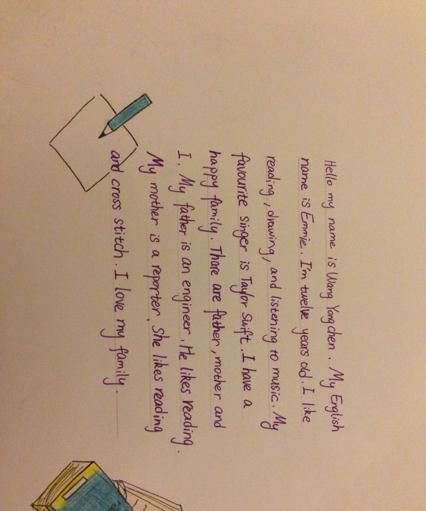 Hello my name is Wang Yongchen. My English
name is Emmie. I'm twelve years old. I like
reading, drawing, and listening to music. My
favourite singer is Taylor Swift. I have a
happy family. There are father, mother and
I. My father is an engineer. He likes reading.
My mother is a reporter. She likes reading
and cross stitch. I love my family.